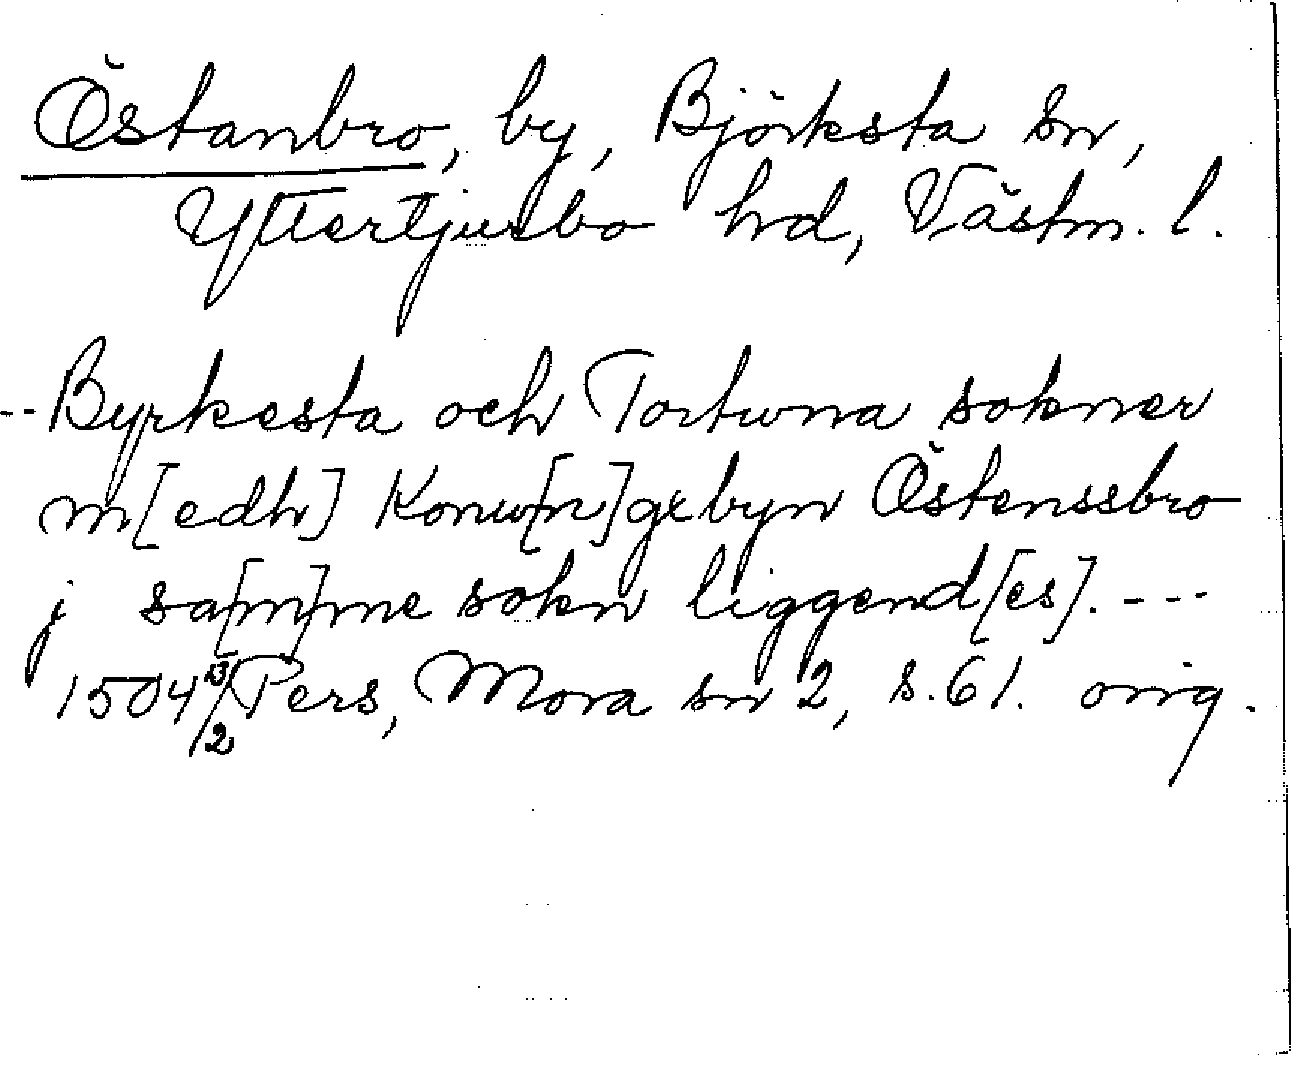 Östanbro, by, Björksta sn,
Yttertjurbo hd, Västm. l.
--Byrkesta och Tortuna sokner
m[edh] Konu[n]gxbyn Östenssbro
j sa[m]me sokn liggend[es]. ---
1504 13/2 Pers, Mora sn 2, s. 61. orig.